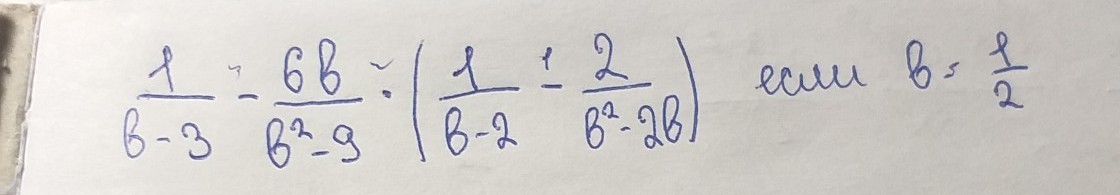 1/(в-3) - 6в/(в²-9) : (1/(в-2) - 2/(в²-2в)) если в = 1/2